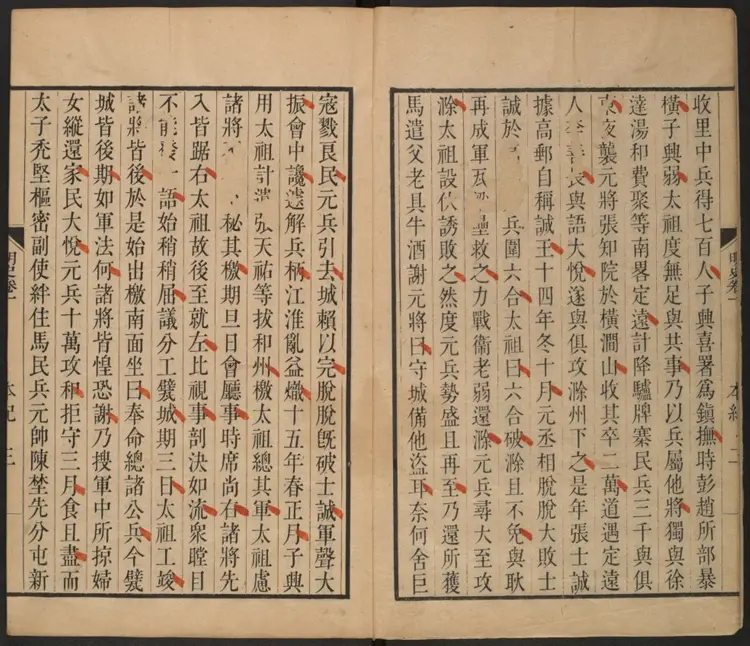 收里中兵得七百人子興喜署爲鎭撫時彭趙所部暴
橫子興弱太祖度無足與共事乃以兵屬他將獨與徐
達湯和費聚等南畧定遠計降驢牌寨民兵三千與俱
東夜襲元將張知院於橫澗山收其卒二萬道遇定遠
人李善長與語大悅遂與俱攻滁州下之是年張士誠
據高郵自稱誠王十四年冬十月元丞相脫脫大敗士
誠於兵圍六合太祖曰六合破滁且不免與耿
再成軍瓦壘救之力戰衞老弱還滁元兵尋大至攻
滁太祖設伏誘敗之然度元兵勢盛且再至乃還所獲
馬遣父老具牛酒謝元將曰守城備他盜耳奈何舍巨
明史卷一 本紀 二
寇戮良民元兵引去城賴以完脫脫旣破士誠軍聲大
振會中讒遽解兵柄江淮亂益熾十五年春正月子興
用太祖計遣張天祐等拔和州檄太祖總其軍太祖慮
諸將秘其檄期旦日會廳事時席尚右諸將先
入皆踞右太祖故後至就左比視事剖決如流衆瞠目
不能發一語始稍稍屈議分工甓城期三日太祖工竣
諸將皆後於是始出檄南面坐曰奉命總諸公兵今甓
城皆後期如軍法何諸將皆惶恐謝乃搜軍中所掠婦
女縱還家民大悅元兵十萬攻和拒守三月食且盡而
太子禿堅樞密副使絆住馬民兵元帥陳埜先分屯新
明史卷一 本紀 三